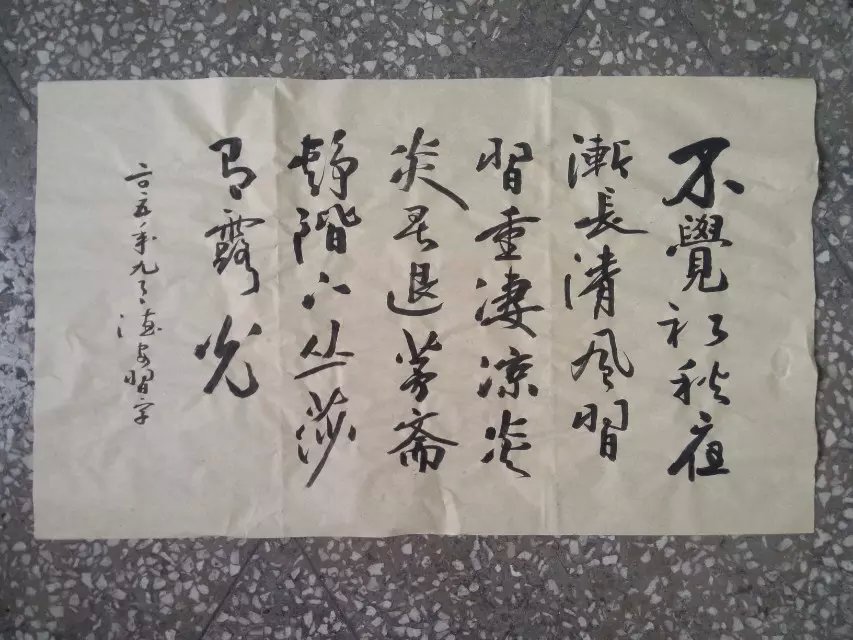 不覺初秋夜
漸長清風習
習重淒涼炎
炎暑退茅斋
静階下丛莎
有露光
二〇一五年九月 習字